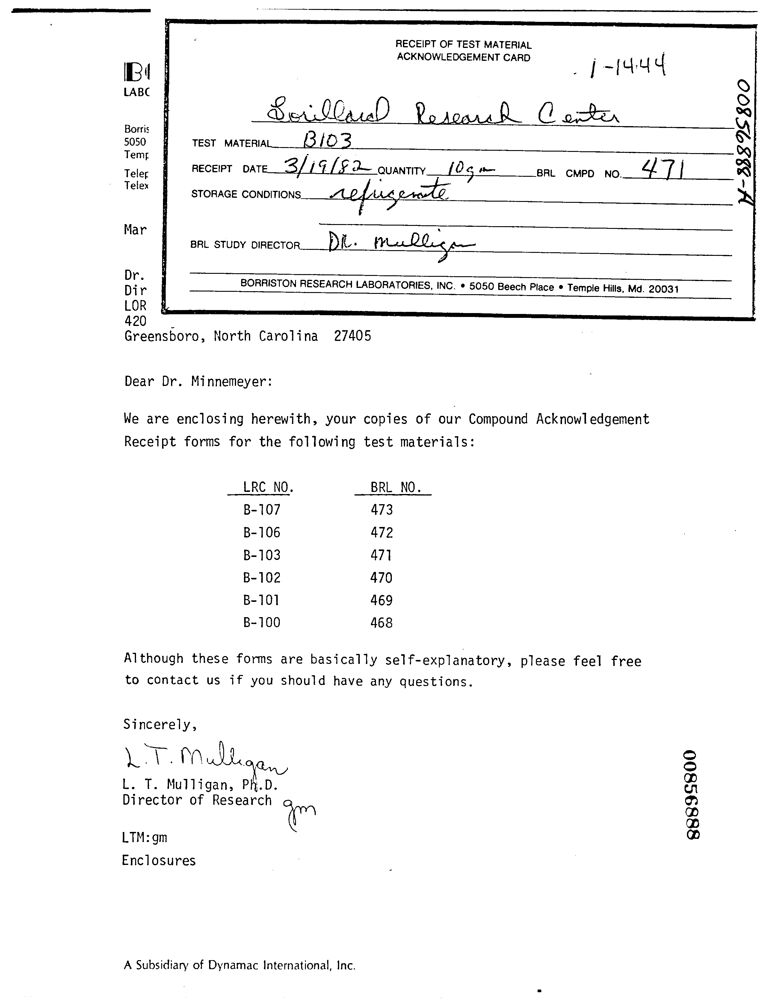 RECEIPT OF TEST MATERIAL
ACKNOWLEDGEMENT CARD
1-14-44
Lorillard Research Center
TEST MATERIAL B103
RECEIPT DATE 3/19/82 QUANTITY 10gm BRL CMPD NO. 471
STORAGE CONDITIONS refrigerate
BRL STUDY DIRECTOR DR. Mulligan
BORRISTON RESEARCH LABORATORIES, INC. • 5050 Beech Place • Temple Hills, Md. 20031
00856888-A
LABC
Borris
5050
Temp
Telep
Telex
Mar
Dr.
Dir
LOR
420
Greensboro, North Carolina 27405
Dear Dr. Minnemeyer:
We are enclosing herewith, your copies of our Compound Acknowledgement
Receipt forms for the following test materials:
LRC NO. BRL NO.
B-107 473
B-106 472
B-103 471
B-102 470
B-101 469
B-100 468
Although these forms are basically self-explanatory, please feel free
to contact us if you should have any questions.
Sincerely,
L. T. Mulligan
L. T. Mulligan, Ph.D.
Director of Research
gm
LTM:gm
Enclosures
00856888
A Subsidiary of Dynamac International, Inc.